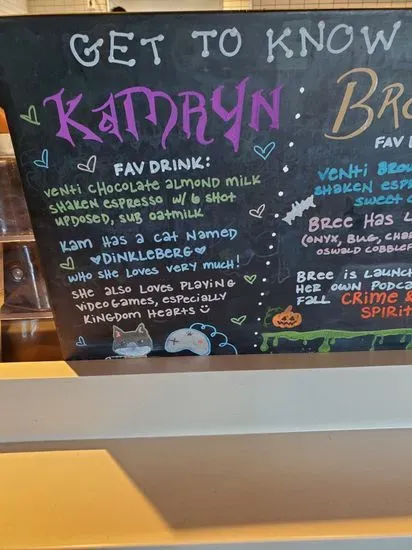 GET TO KNOW
KAMRYN
FAV DRINK:
VENTI CHOCOLATE ALMOND MILK
SHAKEN ESPRESSO W/ 6 SHOT
UPDOSED, SUB OATMILK
KAM HAS A CAT NAMED
DINKLEBERG
WHO SHE LOVES VERY MUCH!
SHE ALSO LOVES PLAYING
VIDEO GAMES, ESPECIALLY
KINGDOM HEARTS
FAV
VENTI
SHAKEN
SWEET
BREE HAS
(ONYX, BUG,
OSWALD
BREE IS
HER OWN
FALL CRIME &